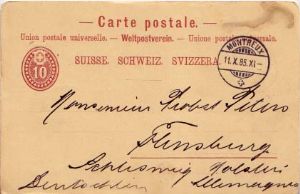 Carte postale.
Union postale universelle. — Weltpostverein. — Unione postale universale.
SUISSE. SCHWEIZ. SVIZZERA.
10
MONTREUX
11.X.95.XI-
Monsieur Probst Peters
Flensburg
Schleswig Holstein
Allemagne